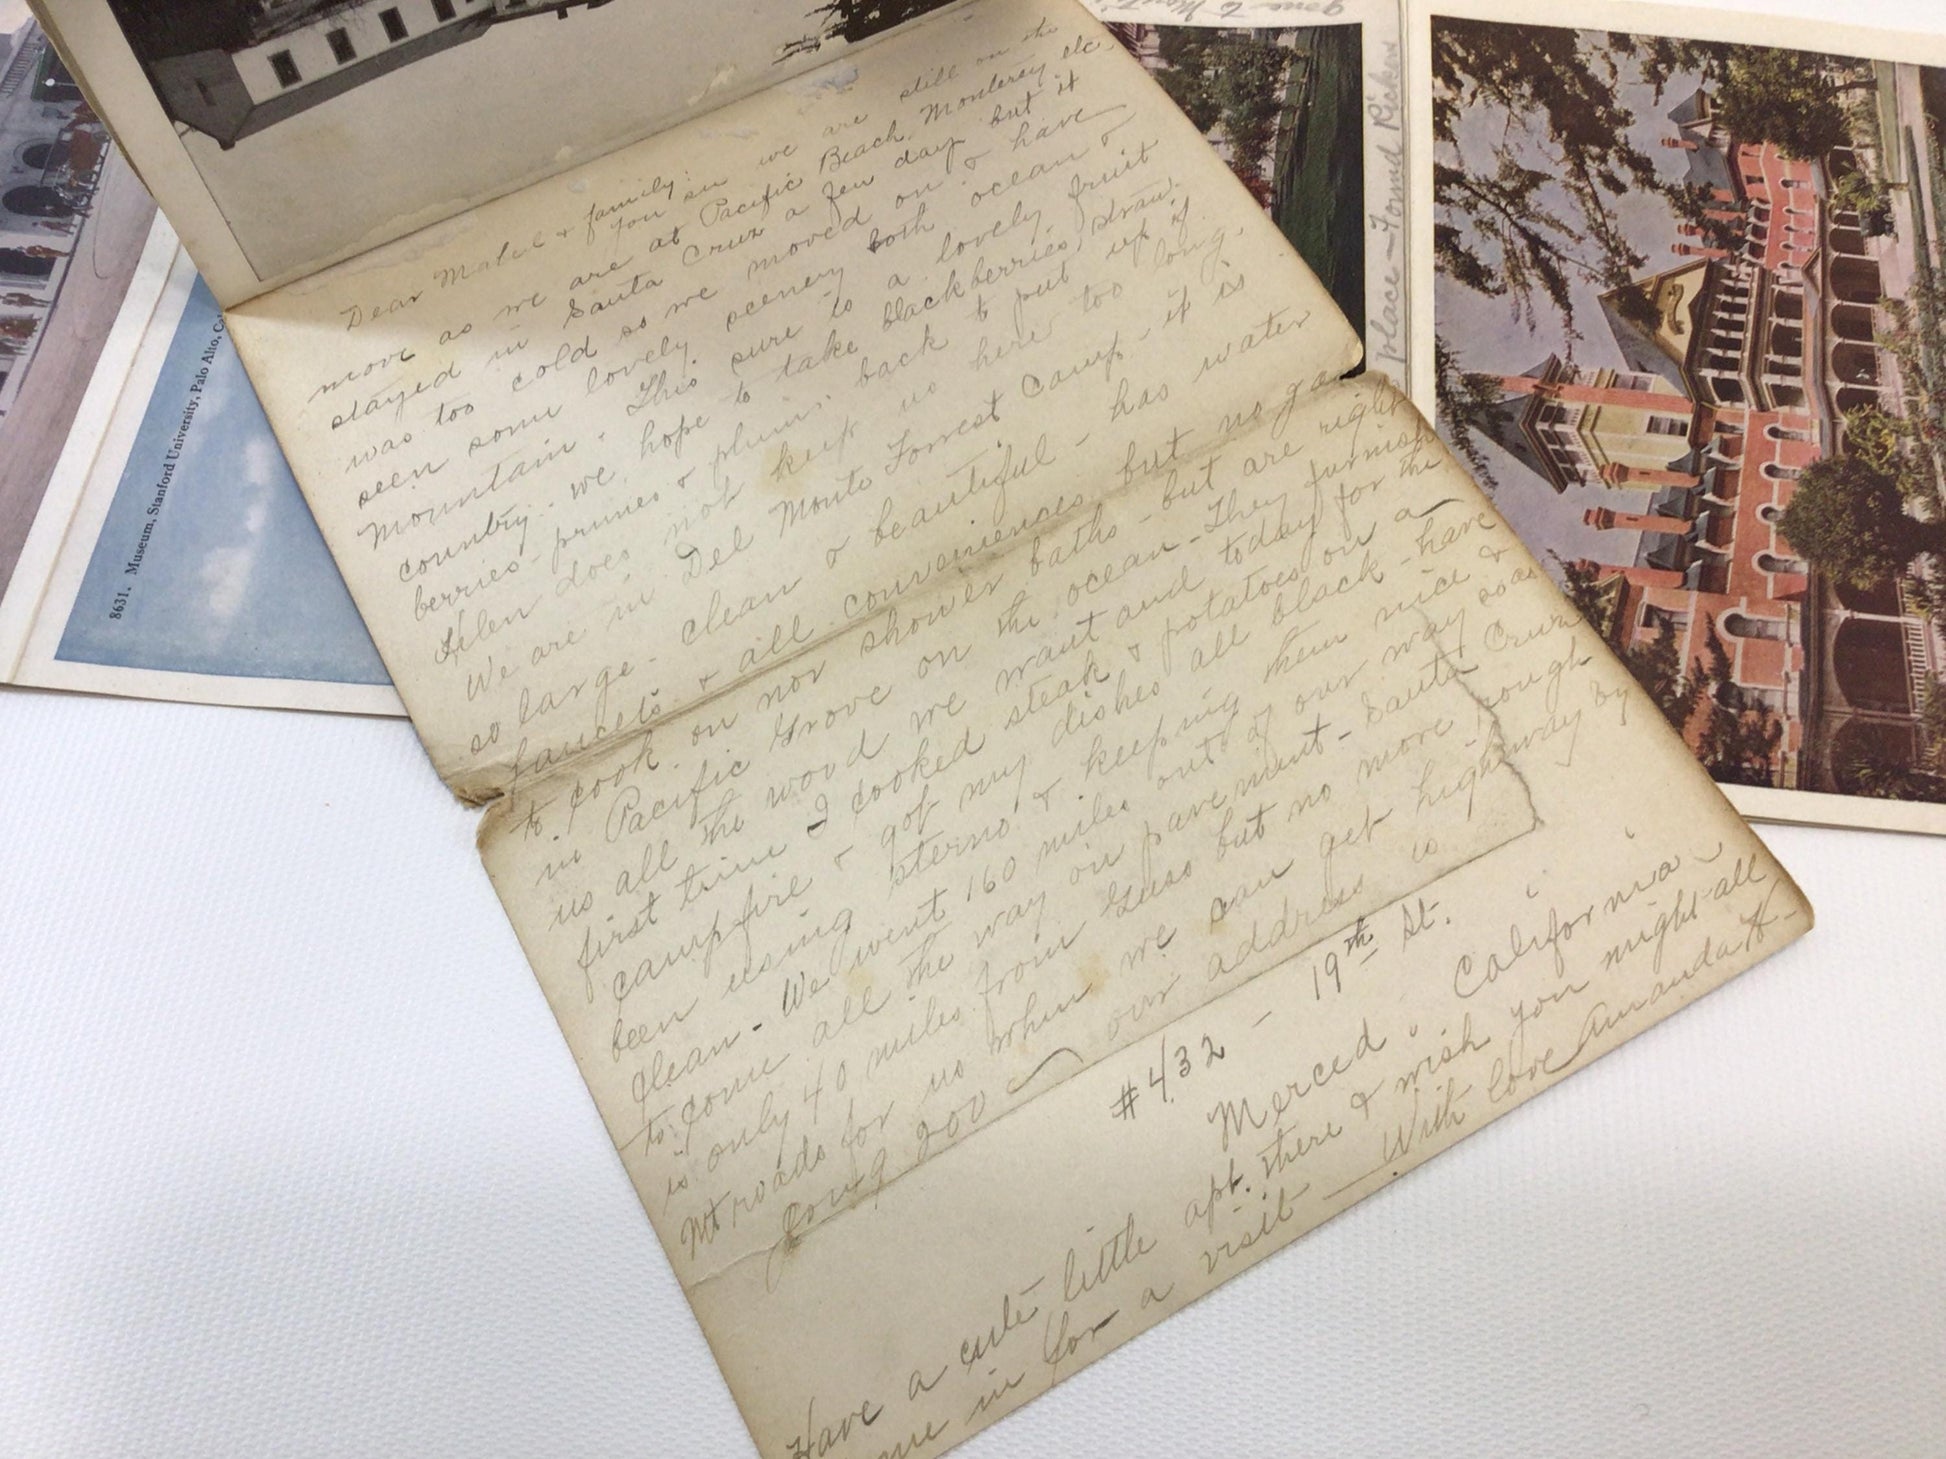 Dear Mabel & family:
You see we are still on the
move as we are at Pacific Beach, Monterey etc.
stayed in Santa Cruz a few day but it
was too cold so we moved on & have
seen some lovely scenery both ocean &
mountain. This sure is a lovely fruit
country. we hope to take blackberries, straw
berries - prunes & plums back to put up if
Helen does not keep us here too long.
We are in Del Monte Forrest Camp - it is
so large - clean & beautiful - has water
faucets & all conveniences but no gas
to cook on nor shower baths - but are right
in Pacific Grove on the ocean - They furnish
us all the wood we want and today for the
first time I cooked steak & potatoes on a
campfire & got my dishes all black - have
been using sterno & keeping them nice &
clean - We went 160 miles out of our way so as
to come all the way on pavement - Santa Cruz
is only 40 miles from Guss but no more rough
Mt roads for us when we can get highway by
going 200
our address is
#432 - 19th St.
Merced, California
Have a cute little apt. there & wish you might all
come in for a visit With love Amanda H-
8631. Museum, Stanford University, Palo Alto, Cal
place - Found Rickers
gone to